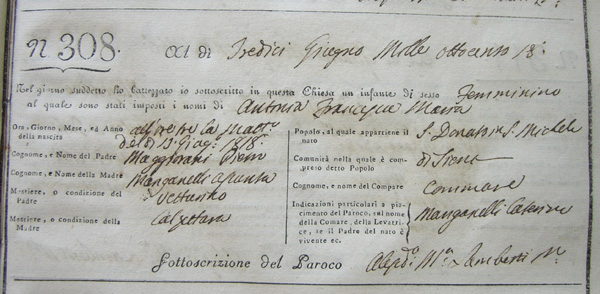 N 308. Al di Tredici Giugno Mille ottocento 18:
Nel giorno suddetto ho battezzato io sottoscritto in questa Chiesa un infante di sesso Femminino
al quale sono stati imposti i nomi di Antonia Francesca Maria
Ora, Giorno, Mese, ed Anno della nascita
all'ore tre la matt.
del dì 13 Giug. 1818.
Cognome, e Nome del Padre
Cognome, e Nome della Madre
Manganelli Assunta
Mestiere, o condizione del Padre
Vetturino
Mestiere, o condizione della Madre
Calzettara
Popolo, al quale appartiene il nato
S. Donato in S. Michele
Comunità nella quale è compreso detto Popolo
di Siena
Cognome, e nome del Compare
Commare
Indicazioni particolari a piacimento del Paroco, sul nome della Comare, della Levatrice, se il Padre del nato è vivente ec.
Manganelli Caterina
Sottoscrizione del Paroco